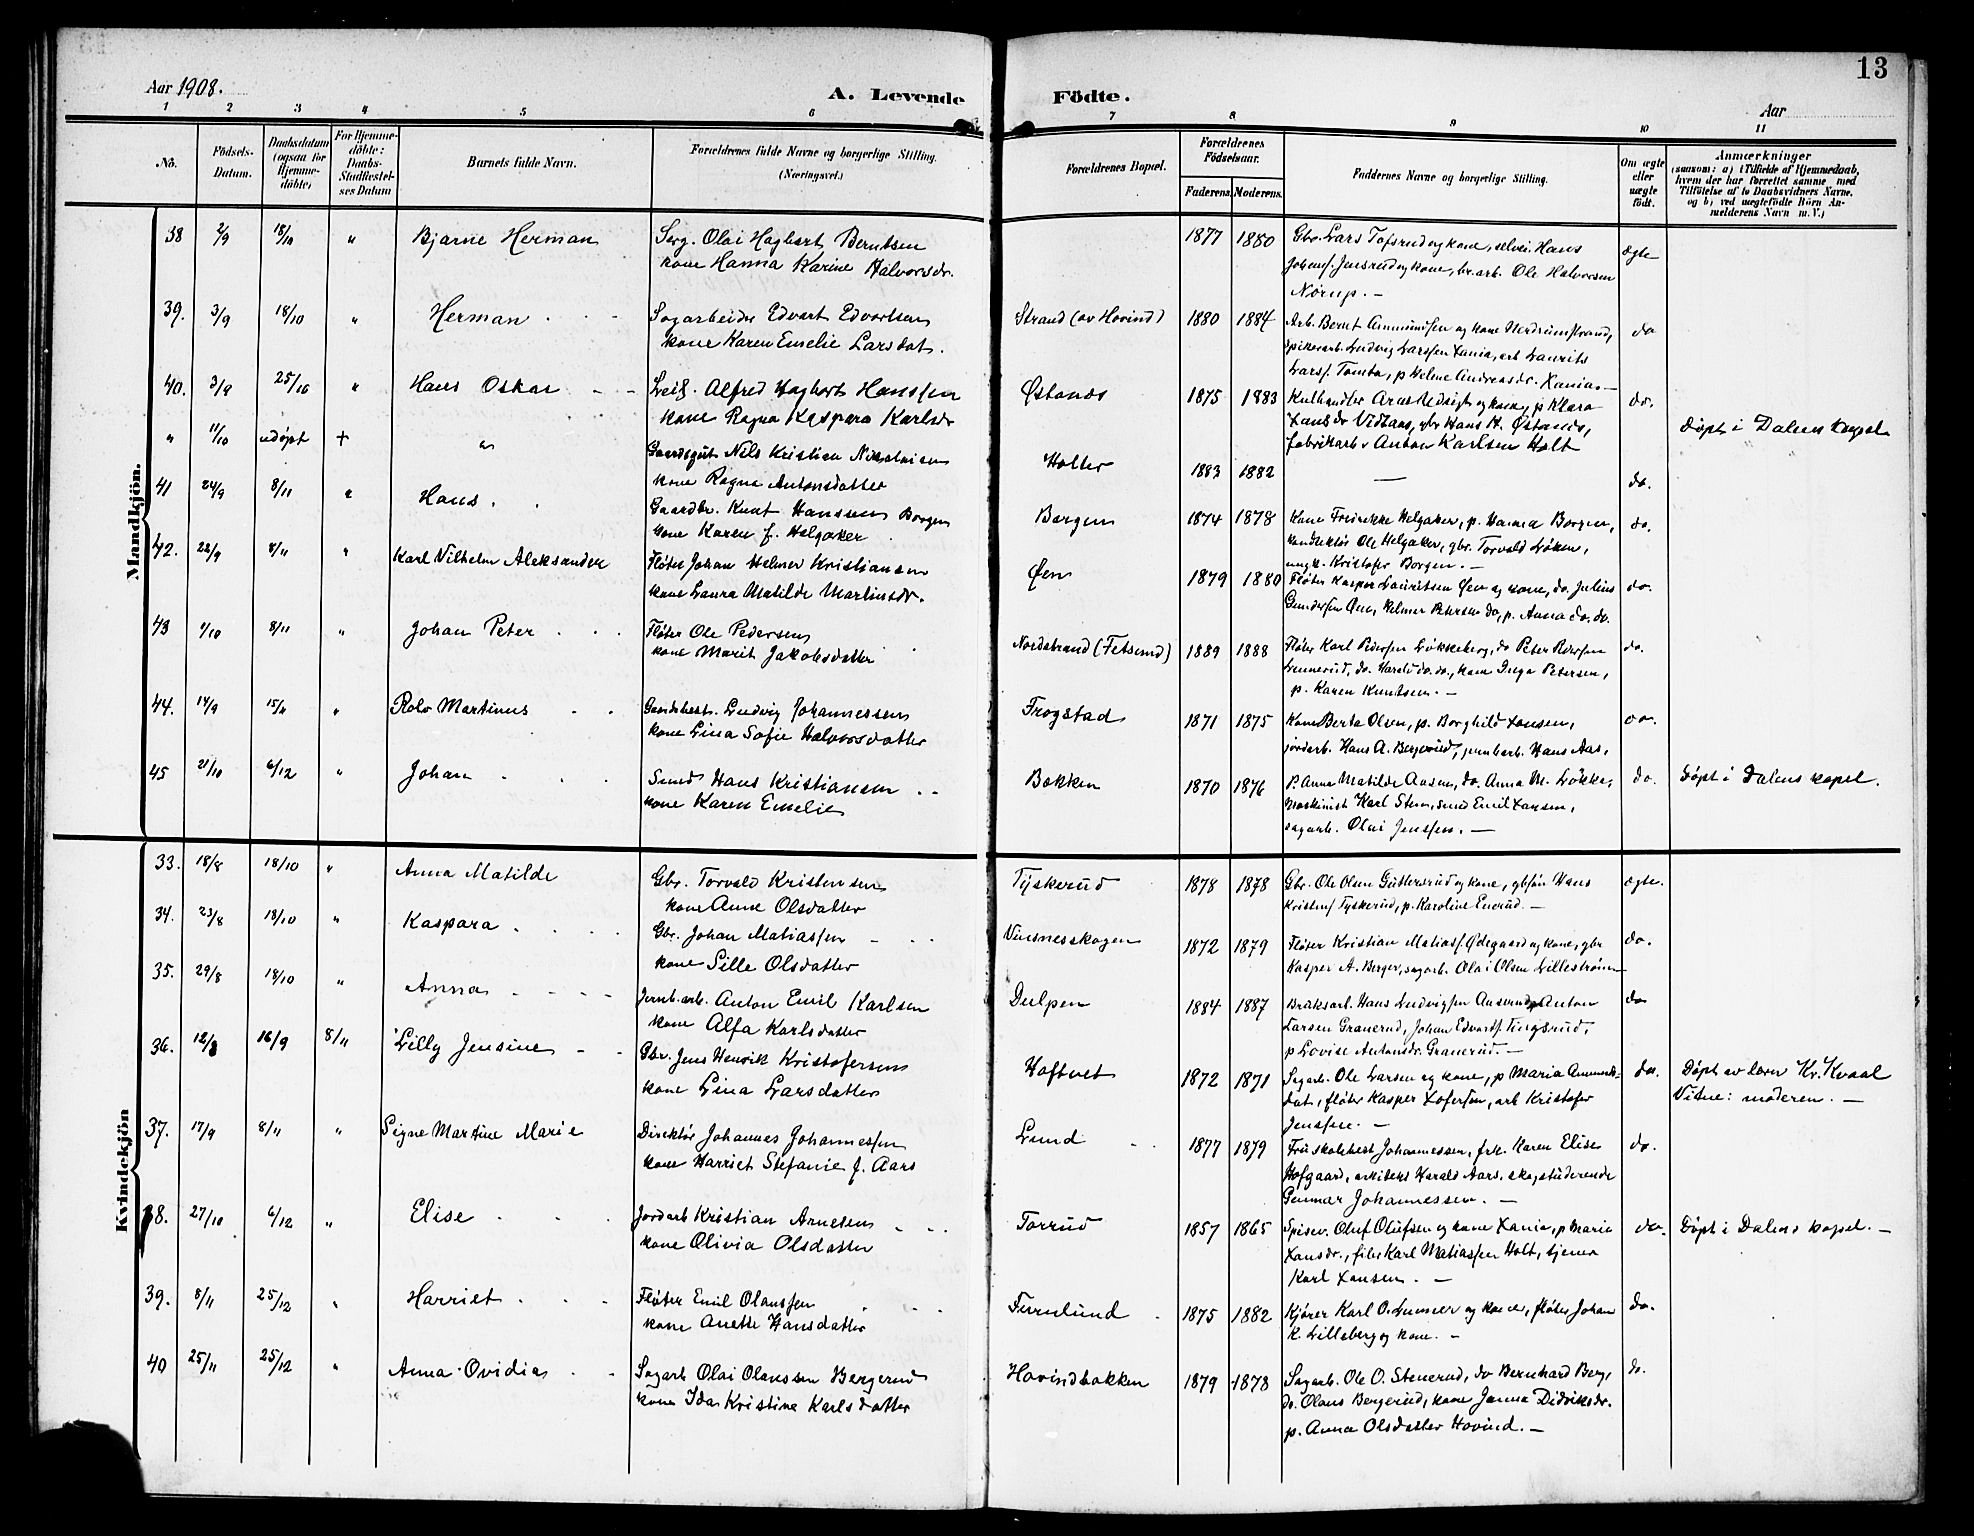 13
Aar 1908.
A. Levende Födte.
Aar
1 2 3 4 5 6 7 8 9 10 11
No.
Födsels-Datum.
Daabsdatum (ogsaa for Hjemme-döbte)
For Hjemme-döbte: Daabs-Stadfæstel-ses Datum
Barnets fulde Navn.
Forældrenes fulde Navne og borgerlige Stilling. (Næringsvei.)
Forældrenes Bopæl.
Forældrenes Födselsaar.
Faderens. Moderens.
Faddernes Navne og borgerlige Stilling.
Om ægte eller uægte födt.
Anmærkninger
(saasom: a) i Tilfælde af Hjemmedaab, hvem der har forrettet samme med Tilföielse af to Daabsvidners Navne. og b) ved uægtefödte Börn An-melderens Navn m. V.)
Mandkjön.
38 2/9 18/10 " Bjarne Herman
Serg. Olai Hagbart Berntsen
kone Hanna Karine Halvorsdr.
1877 1880
Gbr. Lars Tofsrud og kone, selvei. Hans
Johans. Jensrud og kone, br.arb. Ole Halvorsen
Nörup. —
ægte
39. 3/9 18/10 " Herman
Sagarbeider Edvart Edvartsen
kone Karen Emelie Larsdat.
Strand (av Hovind)
1880 1884
Arb. Bernt Ammundsen og kone Nerdrumstrand,
spikerarb. Ludvig Larssen Xania, arb Laurits
Larss. Tomta, p Helene Andreasdr. Xania —
do
40. 3/8 25/10 " Hans Oskar
Leil. Alfred Hagbart Hanssen
kone Ragna Kaspara Karlsdr
Østands
1875 1883
Kulhandler og kone, p Klara
Xansdr Vidtans, gbr Hans H. Østands,
fabrikarb v Anton Karlsen Holt
do.
Döpt i Dalens kapel
" 11/10 udøpt + "
Gaardsgut Nils Kristian Nikolaisen
kone Ragna Antonsdatter
Holter
1883 1882
—
do.
41 24/9 8/11 " Hans.
Gaardbr. Knut Hanssen Borgen
kone Karen f. Helgaker
Borgen
1874 1878
Kone Fredrikke Helgaker, p. Hanna Borgen,
konduktör Ole Helgaker, gbr. Torvald Løken,
ungk. Kristofer Borgen. —
do.
42. 22/9 8/11 " Karl Vilhelm Aleksander
Fløter Johan Helmer Kristiansen
kone Laura Matilde Martinsdr.
Øen
1879 1880
Fløter Kasper Lauritsen Øen og kone, do. Julius
Gundersen Aas, Helmer Petersen do, p. Anna do. do.
do.
43 1/10 8/11 " Johan Peter
Fløter Ole Pedersen
kone Marit Jakobsdatter
Nordstrand (Fetsund)
1889 1888
Fløter Karl Pedersen Løkkeberg, do Peter Pedersen
Lunnerud, do. Harald do. do., kone Inga Petersen,
p. Karen Knutsen. —
do.
44. 14/9 15/11 " Rolv Martinus
Gaardbest. Ludvig Johannessen
kone Lina Sofie Halvorsdatter
Frogstad
1871 1875
Kone Berta Olsen, p. Borghild Xansen,
jordarb. Hans A. Bergerud, jernb.arb. Hans Aas,
do.
45 21/10 6/12 " Johan
Smed Hans Kristiansen
kone Karen Emelie
Bakken
1870 1876
P. Anna Matilde Aasen, do. Anna M. Løkke,
Maskinist Karl Steen, smed Emil Larsen,
sagarb. Olai Jenssen. —
do.
Döpt i Dalens kapel.
Kvindekjön
33. 18/8 18/10 " Anna Matilde
Gbr. Torvald Kristensen
kone Anne Olsdatter
Tyskerud
1878 1878
Gbr. Ole Olsen Guttersrud og kone, gbsön Hans
Kristens. Tyskerud, p. Karoline Enerud. —
ægte.
34. 23/8 18/10 " Kaspara
Gbr. Johan Matiassen
kone Sille Olsdatter
Vinsnesskogen
1872 1879
Fløter Kristian Matiass. Ødegaard og kone, gbr
Kasper A. Berger, sagarb. Olai Olsen Lillestrømen
do.
35. 29/8 18/10 " Anna
Jernb.arb. Anton Emil Karlsen
kone Alfa Karlsdatter
Dulpen
1884 1887
Bruksarb. Hans Ludvigsen Ansrud, Anton
Larsen Granerud, Johan Edvards. Tingsrud,
p Lovise Antonsdr. Granerud. —
do
36. 12/8 16/9 8/11 Lilly Jensine
Gbr. Jens Henrik Kristofersen
kone Lina Larsdatter
Hoftvet
1872 1871
Sagarb. Ole Larsen og kone, p Maria Ammunds-
dat, fløter Kasper Xofersen, arb Kristofer
Jenssen. —
do.
Döpt av lærer Kr. Kvaal
Vidne: moderen. —
37. 17/9 8/11 " Signe Martine Marie
Direktör Johannes Johannessen
kone Harriet Stefanie f. Aars
Lund
1877 1879
Fru skolebest Johannessen, frk. Karen Elise
Hofgaard, arkitekt Harald Aars, skogstuderende
Gunnar Johannessen. —
do.
38. 27/10 6/12 " Elise
Jordarb Kristian Arnesen
kone Olivia Olsdatter
Torrud
1857 1865
Spisev. Oluf Olufsen og kone Xania, p Marie
Xansdr., filer Karl Matiassen Holt, tjener
Karl Xansen. —
do.
Döpt i Dalens kapel. —
39. 8/11 25/12 " Harriet
Fløter Emil Olaussen
kone Anette Hansdatter
Furulund
1875 1882
Kjører Karl O. Lunner og kone, fløter Johan
K. Lilleberg og kone. —
do.
40 25/11 25/12 " Anna Ovidia
Sagarb Olai Olaussen Bergerud
kone Ida Kristine Karlsdatter
Hovindbakken
1879 1878
Sagarb. Ole O. Stenerud, do Bernhard Berg,
do. Olaus Bergerud, kone Janna Didriksdr.
p. Anna Olsdatter Hovind. —
do.